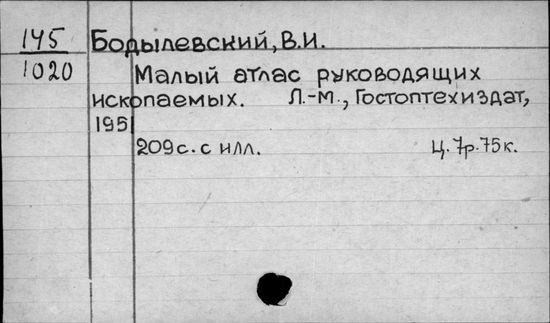 145 Бодылевский, В.И.
1020 Малый атлас руководящих
ископаемых. Л.-М., Гостоптехиздат,
1951
209 с. с илл. Ц. 7р. 75к.